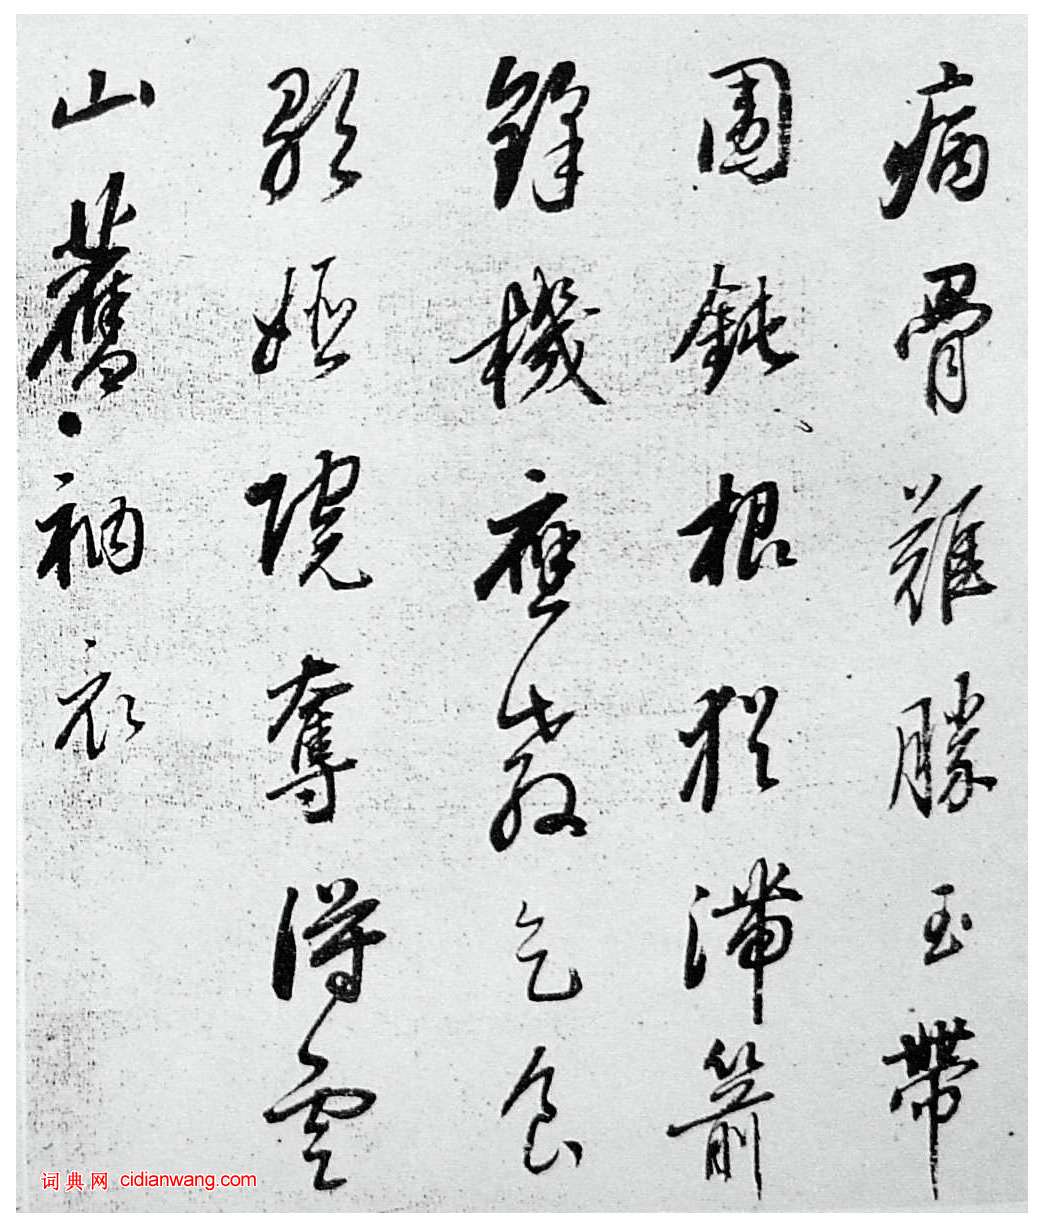 病骨難勝玉帶
圍鈍根猶滯箭
鋒機應教乞食
歌姬院奪得雲
山舊衲衣
词典网 cidianwang.com